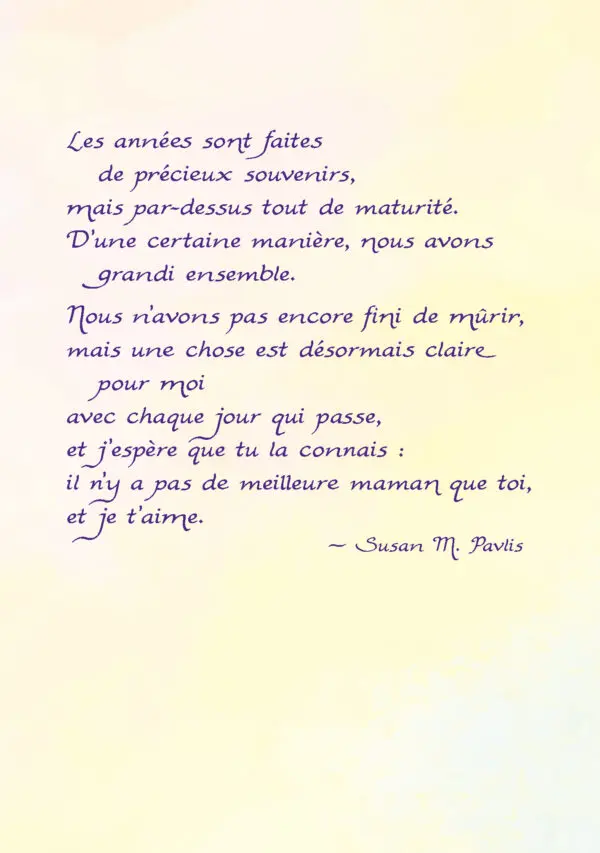 Les années sont faites
de précieux souvenirs,
mais par-dessus tout de maturité.
D'une certaine manière, nous avons
grandi ensemble.
Nous n'avons pas encore fini de mûrir,
mais une chose est désormais claire
pour moi
avec chaque jour qui passe,
et j'espère que tu la connais :
il n'y a pas de meilleure maman que toi,
et je t'aime.
— Susan M. Pavlis